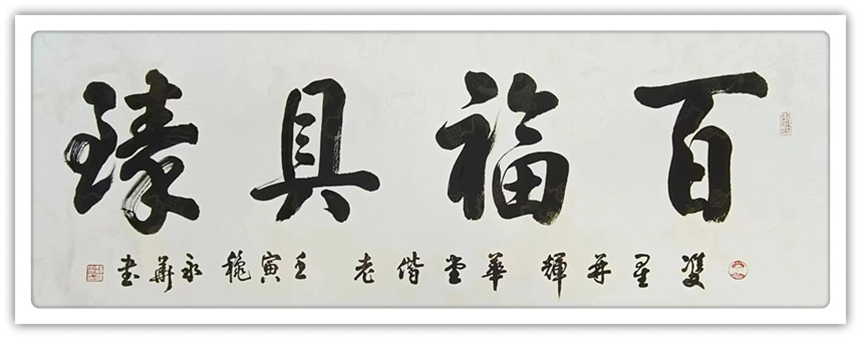 百福具臻
雙星并輝 華堂偕老 壬寅穐 永華書